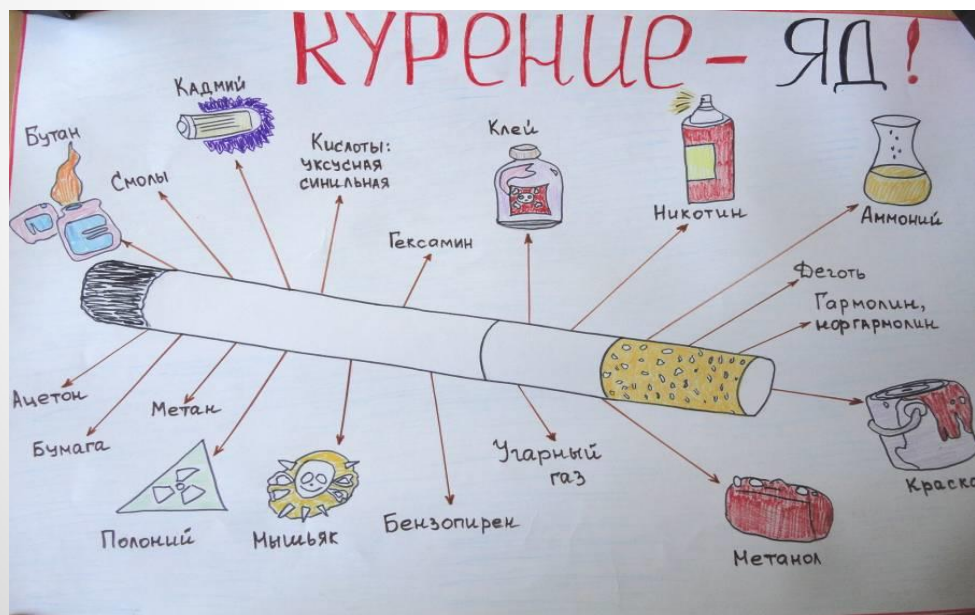 КУРЕНИЕ - ЯД!
Кадмий
Бутан
Смолы
Кислоты:
уксусная
синильная
Гексамин
Клей
Никотин
Аммоний
Деготь
Гармолин,
норгармолин
Ацетон
Бумага
Метан
Полоний
Мышьяк
Бензопирен
Угарный
газ
Метанол
Краска